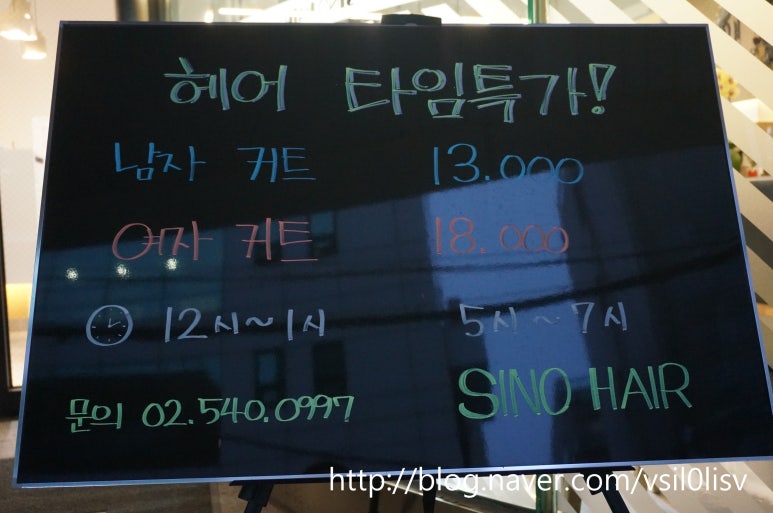 헤어 타임특가!
남자 커트 13.000
여자 커트 18.000
12시~1시 5시~7시
문의 02.540.0997 SINO HAIR
http://blog.naver.com/vsil0lisv